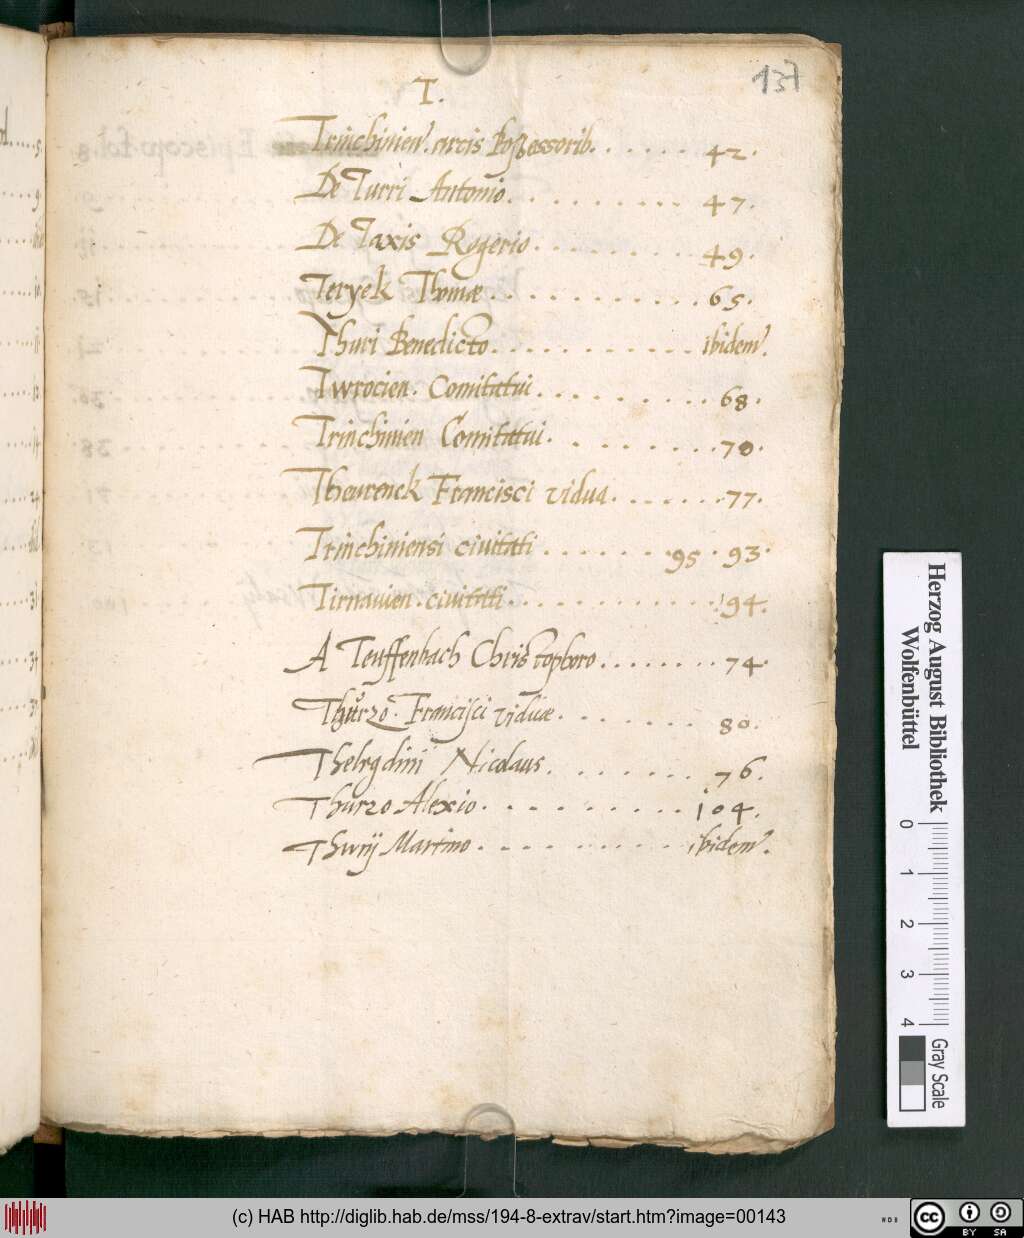 137
T.
Trinchinien. arcis Poßessorib. . . . . . . 42.
De Turri Antonio. . . . . . . . . . 47.
De Taxis Rogerio . . . . . . . . 49.
Teryek Thomæ . . . . . . . . . . . . 65.
Thuri Benedicto . . . . . . . . . . . . ibidem.
Twrocien. Comitatui . . . . . . . . . . 68.
Trinchinien Comitatui . . . . . . . . . 70.
Theurenck Francisci vidua . . . . . . . 77.
Trinchiniensi civitati . . . . . . . 95 . 93.
Tirnauien. civitati . . . . . . . . . . . . 94.
A Teuffenbach Christophoro . . . . . . . . 74.
Thurzo. Francisci viduæ . . . . . . . . 80.
Nicolaus . . . . . . . . 76.
Thurzo Alexio . . . . . . . . . . . 104.
Thwrij Martino . . . . . . . . . . . ibidem.
Herzog August Bibliothek
Wolfenbüttel
0 1 2 3 4
Gray Scale
(c) HAB http://diglib.hab.de/mss/194-8-extrav/start.htm?image=00143
cc BY SA